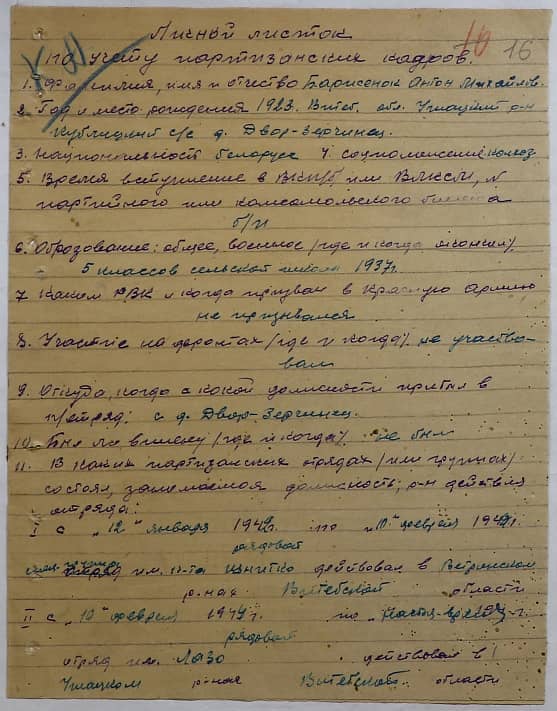 Личный листок
по учету партизанских кадров.
16 16
1. Фамилия, имя и отчество Барисенок Антон Михайлов.
2. Год и место рождения 1923. Витеб. обл. Ушацкий р-н
Кублицкий с/с д. Двор-Зерчинец.
3. Национальность белорус 4. соцположение колхоз.
5. Время вступление в ВКП/б/ или ВЛКСМ, №
партийного или комсомольского билета
б/п
6. Образование: общее, военное /где и когда окончил/
5 классов сельской школы 1937г.
7. Каким РВК и когда призван в Красную армию
не призывался
8. Участие на фронтах /где и когда/ не участво-
вал
9. Откуда, когда с какой должности прибыл в
п/отряд: с д. Двор-Зерчинец.
10. Был ли в плену /где и когда/ не был
11. В каких партизанских отрядах /или группах/
состоял, занимаемая должность; р-н действия
отряда:
I с "12" января по "10" февраля
рядовой
отряд им. действовал в Ветринском
р-нах Витебской области
II с "10" февраля по
рядовой
отряд им. Лазо действовал в
Ушацком р-нах Витебской области